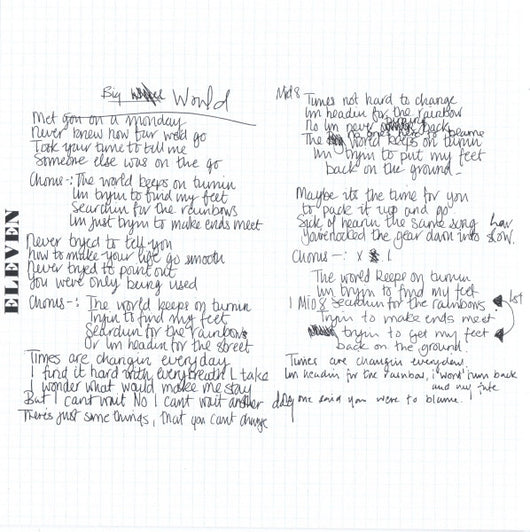 Big World
Met you on a monday
Never knew how far we'd go
Took your time to tell me
Someone else was on the go
Chorus -: The world keeps on turnin
Im tryin to find my feet
Searchin for the rainbows
Im just tryin to make ends meet
Never tryed to tell you
how to make your life go smooth
Never tryed to point out
you were only being used
Chorus -: The world keeps on turnin
Tryin to find my feet
Searchin for the rainbows
Or Im headin for the street
Times are changin everyday
I find it hard with every breath I take
I wonder what would make me stay
But I cant wait No I cant wait another day
Theres just some things, that you cant change
ELEVEN
Mid 8 Times not hard to change
Im headin for the rainbow
No Im never turning back
no ones here to blame
The world keeps on turnin
Im tryin to put my feet
back on the ground
Maybe its the time for you
to pack it up and go
Sick of hearin the same song
You rocked the gear down into slow.
Chorus -: x 1
The world keeps on turnin
Im tryin to find my feet
1 Mid 8 Searchin for the rainbows 1st
Tryin to make ends meet
tryin to get my feet
back on the ground.
Times are changin everyday.
Im headin for the rainbow, i wont turn back
and my fate
no one said you were to blame.